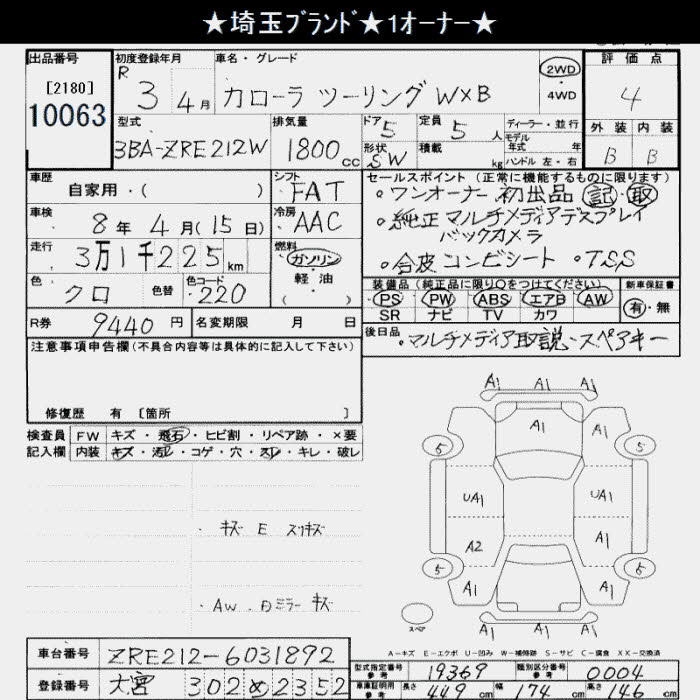 ★埼玉ﾌﾞﾗﾝﾄﾞ★1オーナー★
出品番号 初度登録年月 車名・グレード 評価点
[2180] R 3 4月 カローラ ツーリング W×B 2WD ・ 4WD 4
10063
型式 排気量 ドア 5 定員 5人 ディーラー・並行 外装 内装
3BA-ZRE212W 1800cc 形状 SW 積載 kg モデル年式 年 ハンドル 左・右 B B
車歴 シフト セールスポイント (正常に機能するものに限ります)
自家用・( ) FAT ・ワンオーナー 初出品 記・取
車検 冷房 ・純正 マルチメディアデスプレイ
8年 4月(15日) AAC バックカメラ
走行 燃料 ・合皮 コンビシート ・TSS
3万1千225km ガソリン
色 色替 色コード 軽油 装備品(純正品に限り○をつけてください) 新車保証書
クロ 220 ・( ) PS・PW・ABS・エアB・AW 有・無
SR ナビ TV カワ
R券 9440円 名変期限 月 日 後日品 ・マルチメディア取説・スペアキー
注意事項申告欄(不具合内容等は具体的に記入して下さい)
修復歴 有 [箇所 ]
検査員 FW キズ・飛石・ヒビ割・リペア跡・×要
記入欄 内装 キズ・汚レ・コゲ・穴・スレ・キレ・破レ
A1 A1 A1
A1
A1 A1
5 5
UA1 UA1
・キズ E スリキズ
A2 A1
5 5
A1 A1 A1
・AW.Dミラー キズ
スペア
A1 A1 A1
A-キズ E-エクボ U-凹み W-補修跡 S-サビ C-腐食 XX-交換済
車台番号 ZRE212-6031892
型式指定番号 参考 19369 類別区分番号 参考 0004
登録番号 大宮 302 め 2352
車庫証明用 参考 長さ 449cm 幅 174cm 高さ 146cm